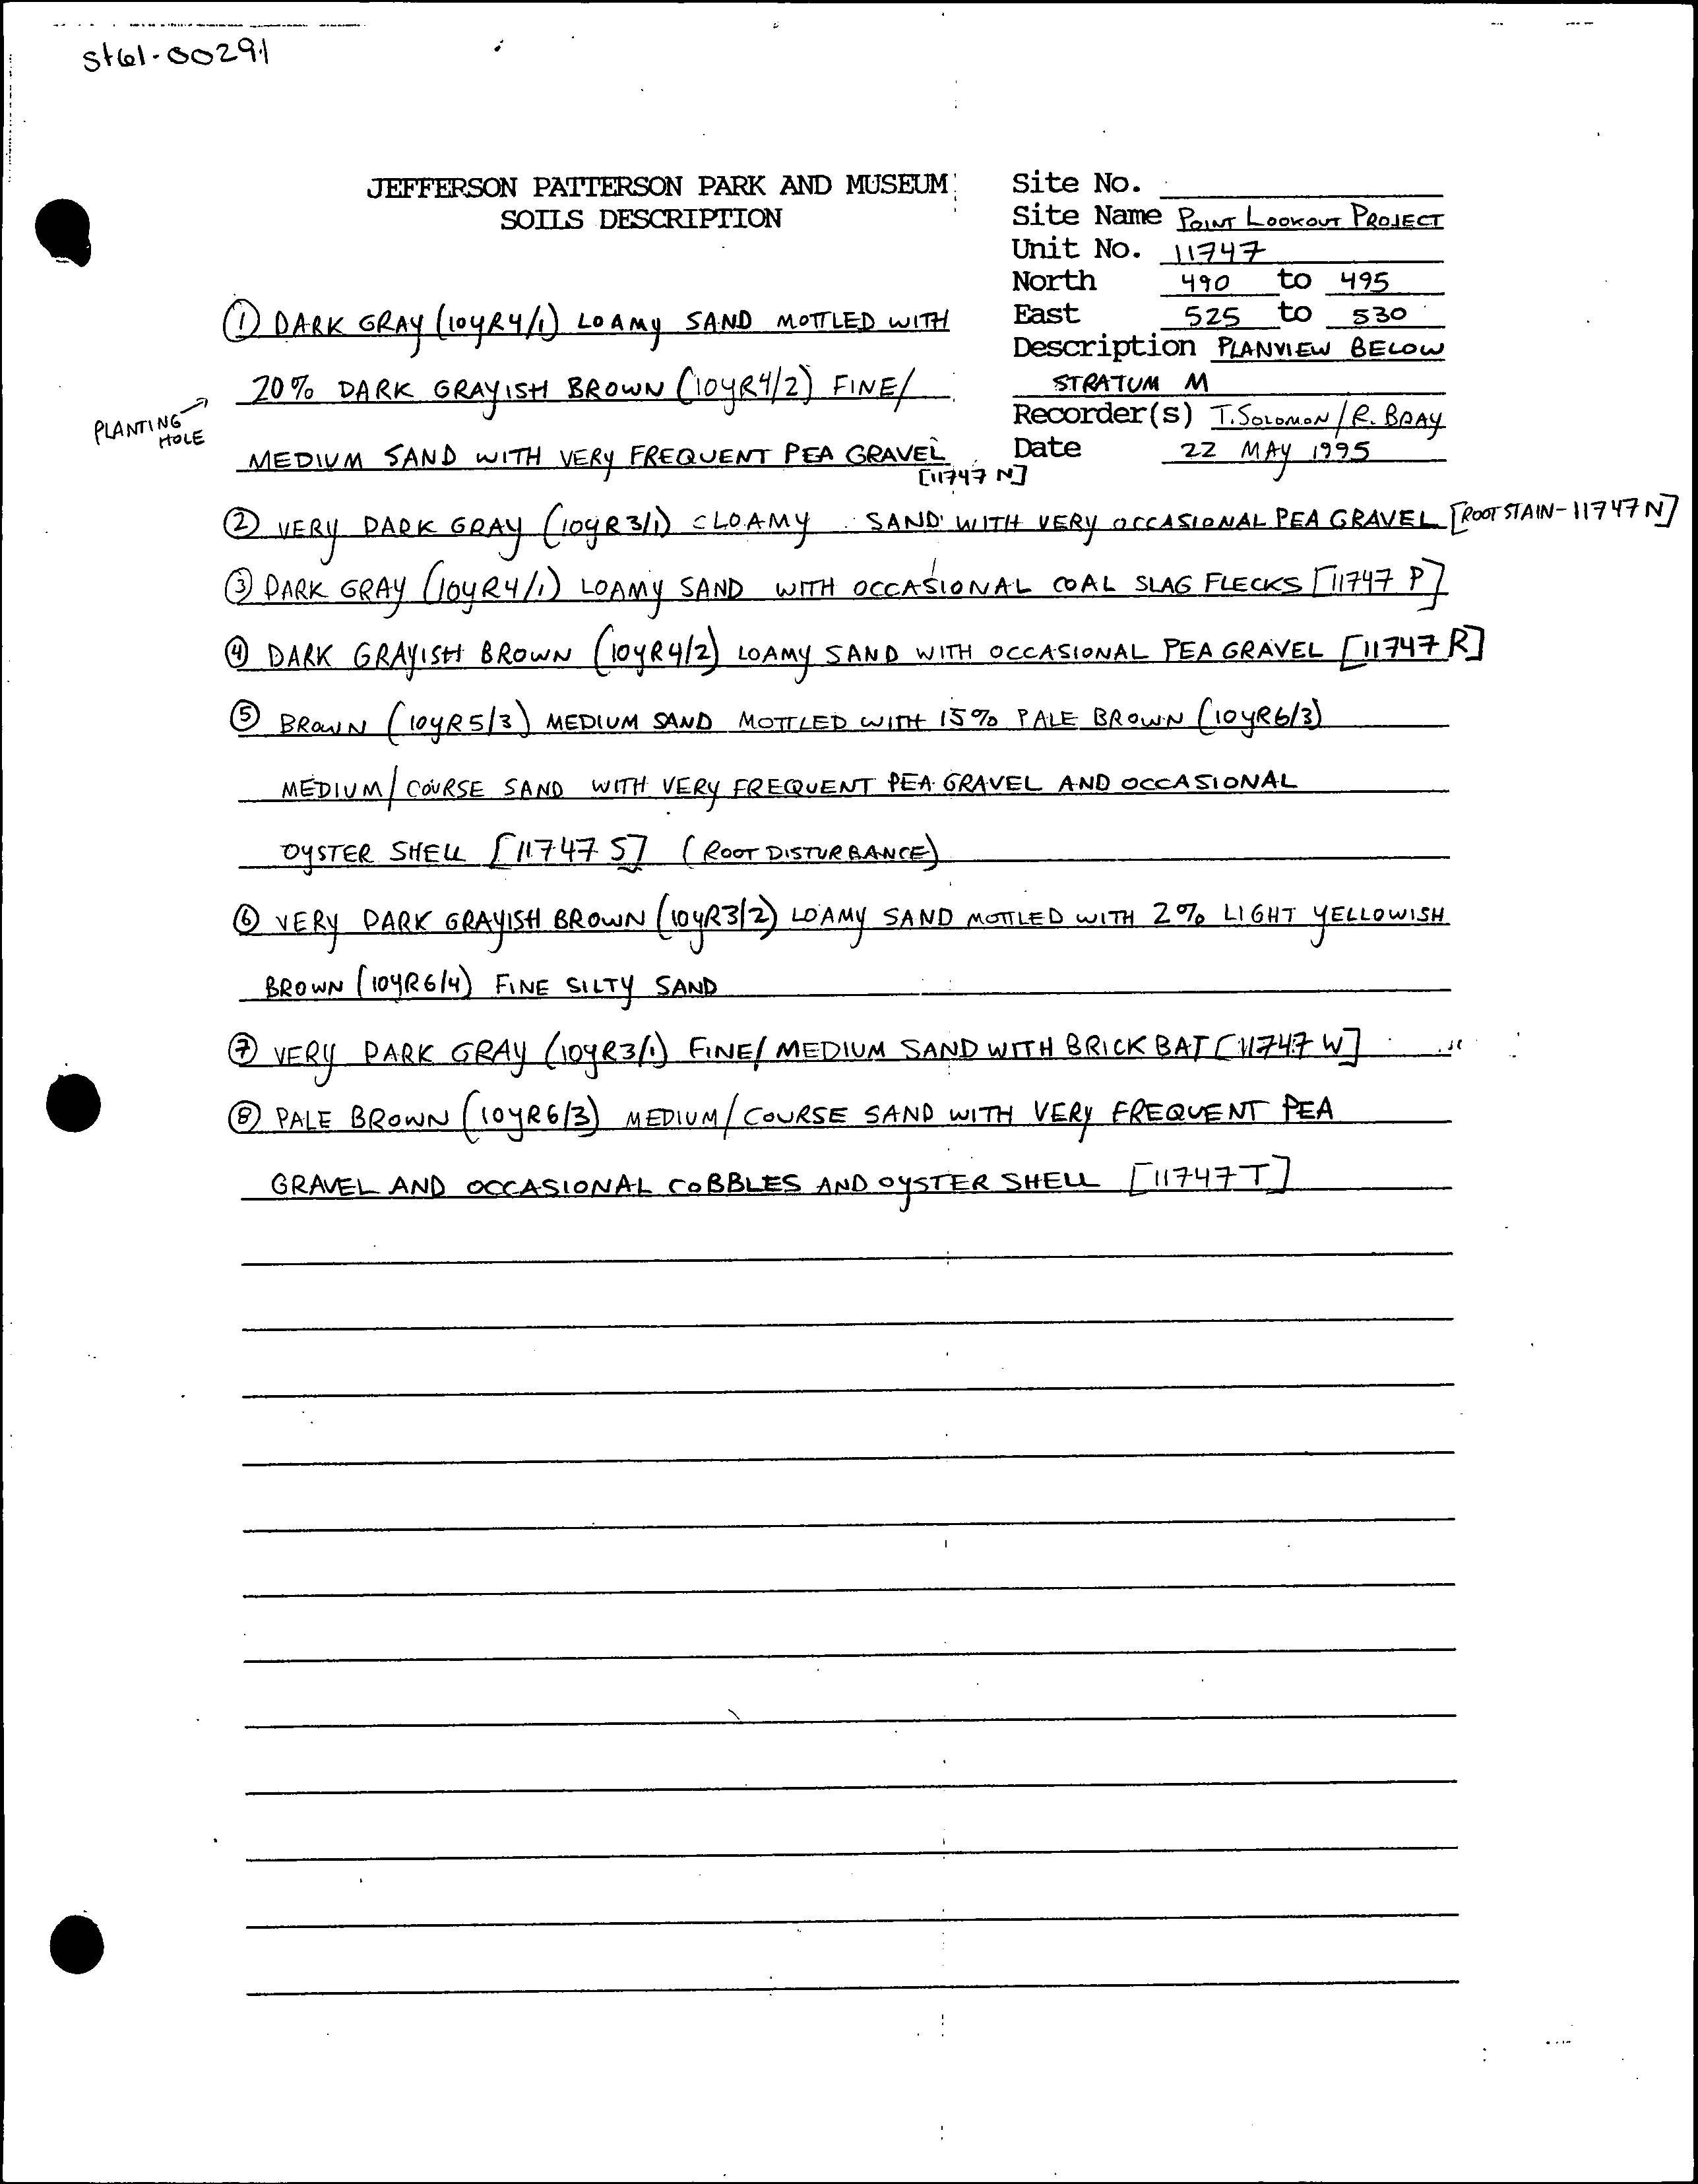 st61-00291
JEFFERSON PATTERSON PARK AND MUSEUM
SOILS DESCRIPTION
Site No.
Site Name POINT LOOKOUT PROJECT
Unit No. 11747
North 490 to 495
East 525 to 530
Description PLANVIEW BELOW
STRATUM M
Recorder(s) T. SOLOMON / R. BRAY
Date 22 MAY 1995
① DARK GRAY (10YR4/1) LOAMY SAND MOTTLED WITH
20% DARK GRAYISH BROWN (10YR4/2) FINE/
PLANTING HOLE
MEDIUM SAND WITH VERY FREQUENT PEA GRAVEL
[11747 N]
② VERY DARK GRAY (10YR3/1) CLOAMY SAND WITH VERY OCCASIONAL PEA GRAVEL [ROOT STAIN-11747N]
③ DARK GRAY (10YR4/1) LOAMY SAND WITH OCCASIONAL COAL SLAG FLECKS [11747 P]
④ DARK GRAYISH BROWN (10YR4/2) LOAMY SAND WITH OCCASIONAL PEA GRAVEL [11747 R]
⑤ BROWN (10YR5/3) MEDIUM SAND MOTTLED WITH 15% PALE BROWN (10YR6/3)
MEDIUM/COURSE SAND WITH VERY FREQUENT PEA GRAVEL AND OCCASIONAL
OYSTER SHELL [11747 S] (ROOT DISTURBANCE)
⑥ VERY DARK GRAYISH BROWN (10YR3/2) LOAMY SAND MOTTLED WITH 2% LIGHT YELLOWISH
BROWN (10YR6/4) FINE SILTY SAND
⑦ VERY DARK GRAY (10YR3/1) FINE/MEDIUM SAND WITH BRICK BAT [11747 W]
⑧ PALE BROWN (10YR6/3) MEDIUM/COURSE SAND WITH VERY FREQUENT PEA
GRAVEL AND OCCASIONAL COBBLES AND OYSTER SHELL [11747 T]